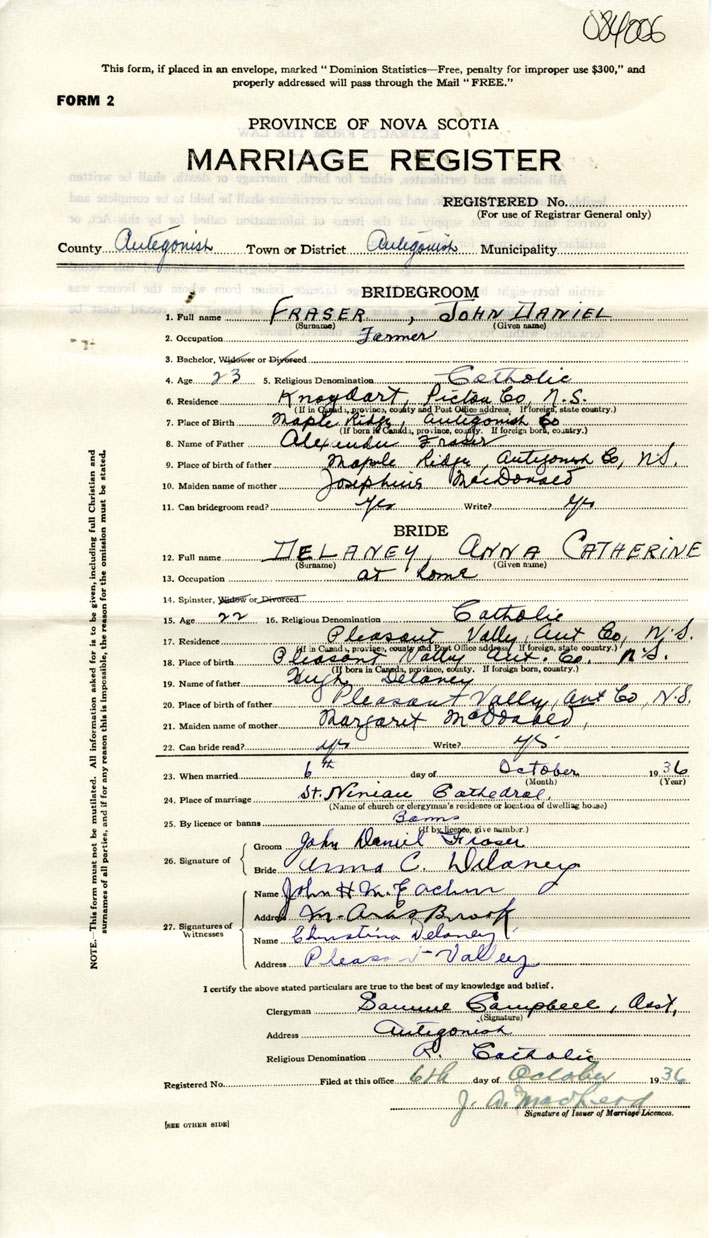 084006
This form, if placed in an envelope, marked "Dominion Statistics—Free, penalty for improper use $300," and
properly addressed will pass through the Mail "FREE."
FORM 2
PROVINCE OF NOVA SCOTIA
MARRIAGE REGISTER
REGISTERED No.
(For use of Registrar General only)
County Antigonish Town or District Antigonish Municipality
BRIDEGROOM
1. Full name FRASER, JOHN DANIEL
(Surname) (Given name)
2. Occupation Farmer
3. Bachelor, Widower or Divorced
4. Age 23 5. Religious Denomination Catholic
6. Residence Knoydart, Pictou Co, N.S.
(If in Canada, province, county and Post Office address. If foreign, state country.)
7. Place of Birth Maple Ridge, Antigonish Co
(If born in Canada, province, county. If foreign born, country.)
8. Name of Father Alexander Fraser
9. Place of birth of father Maple Ridge, Antigonish Co, N.S.
10. Maiden name of mother Josephine MacDonald
11. Can bridegroom read? yes Write? yes
BRIDE
12. Full name DELANEY, ANNA CATHERINE
(Surname) (Given name)
13. Occupation at home
14. Spinster, Widow or Divorced
15. Age 22 16. Religious Denomination Catholic
17. Residence Pleasant Vally, Ant Co, N.S.
(If in Canada, province, county and Post Office address. If foreign, state country.)
18. Place of birth Pleasant Vally Ant. Co, N.S.
(If born in Canada, province, county. If foreign born, country.)
19. Name of father Hugh Delaney
20. Place of birth of father Pleasant Vally, Ant Co, N.S.
21. Maiden name of mother Margaret McDonald,
22. Can bride read? yes Write? yes
23. When married 6th day of October 1936
(Month) (Year)
24. Place of marriage St. Ninian Cathedral,
(Name of church or clergyman's residence or location of dwelling house)
25. By licence or banns Banns
(If by licence, give number.)
26. Signature of
Groom John Daniel Fraser
Bride Anna C. Delaney
27. Signatures of Witnesses
Name John H McEachern
Address Brook
Name Christina Delaney
Address Pleasant Valley
I certify the above stated particulars are true to the best of my knowledge and belief.
Clergyman Campbell, Asst,
(Signature)
Address Antigonish
Religious Denomination R. Catholic
Registered No. Filed at this office 6th day of October 1936
J. A.
Signature of Issuer of Marriage Licences.
[SEE OTHER SIDE]
NOTE.—This form must not be mutilated. All information asked for is to be given, including full Christian and
surnames of all parties, and if for any reason this is impossible, the reason for the omission must be stated.